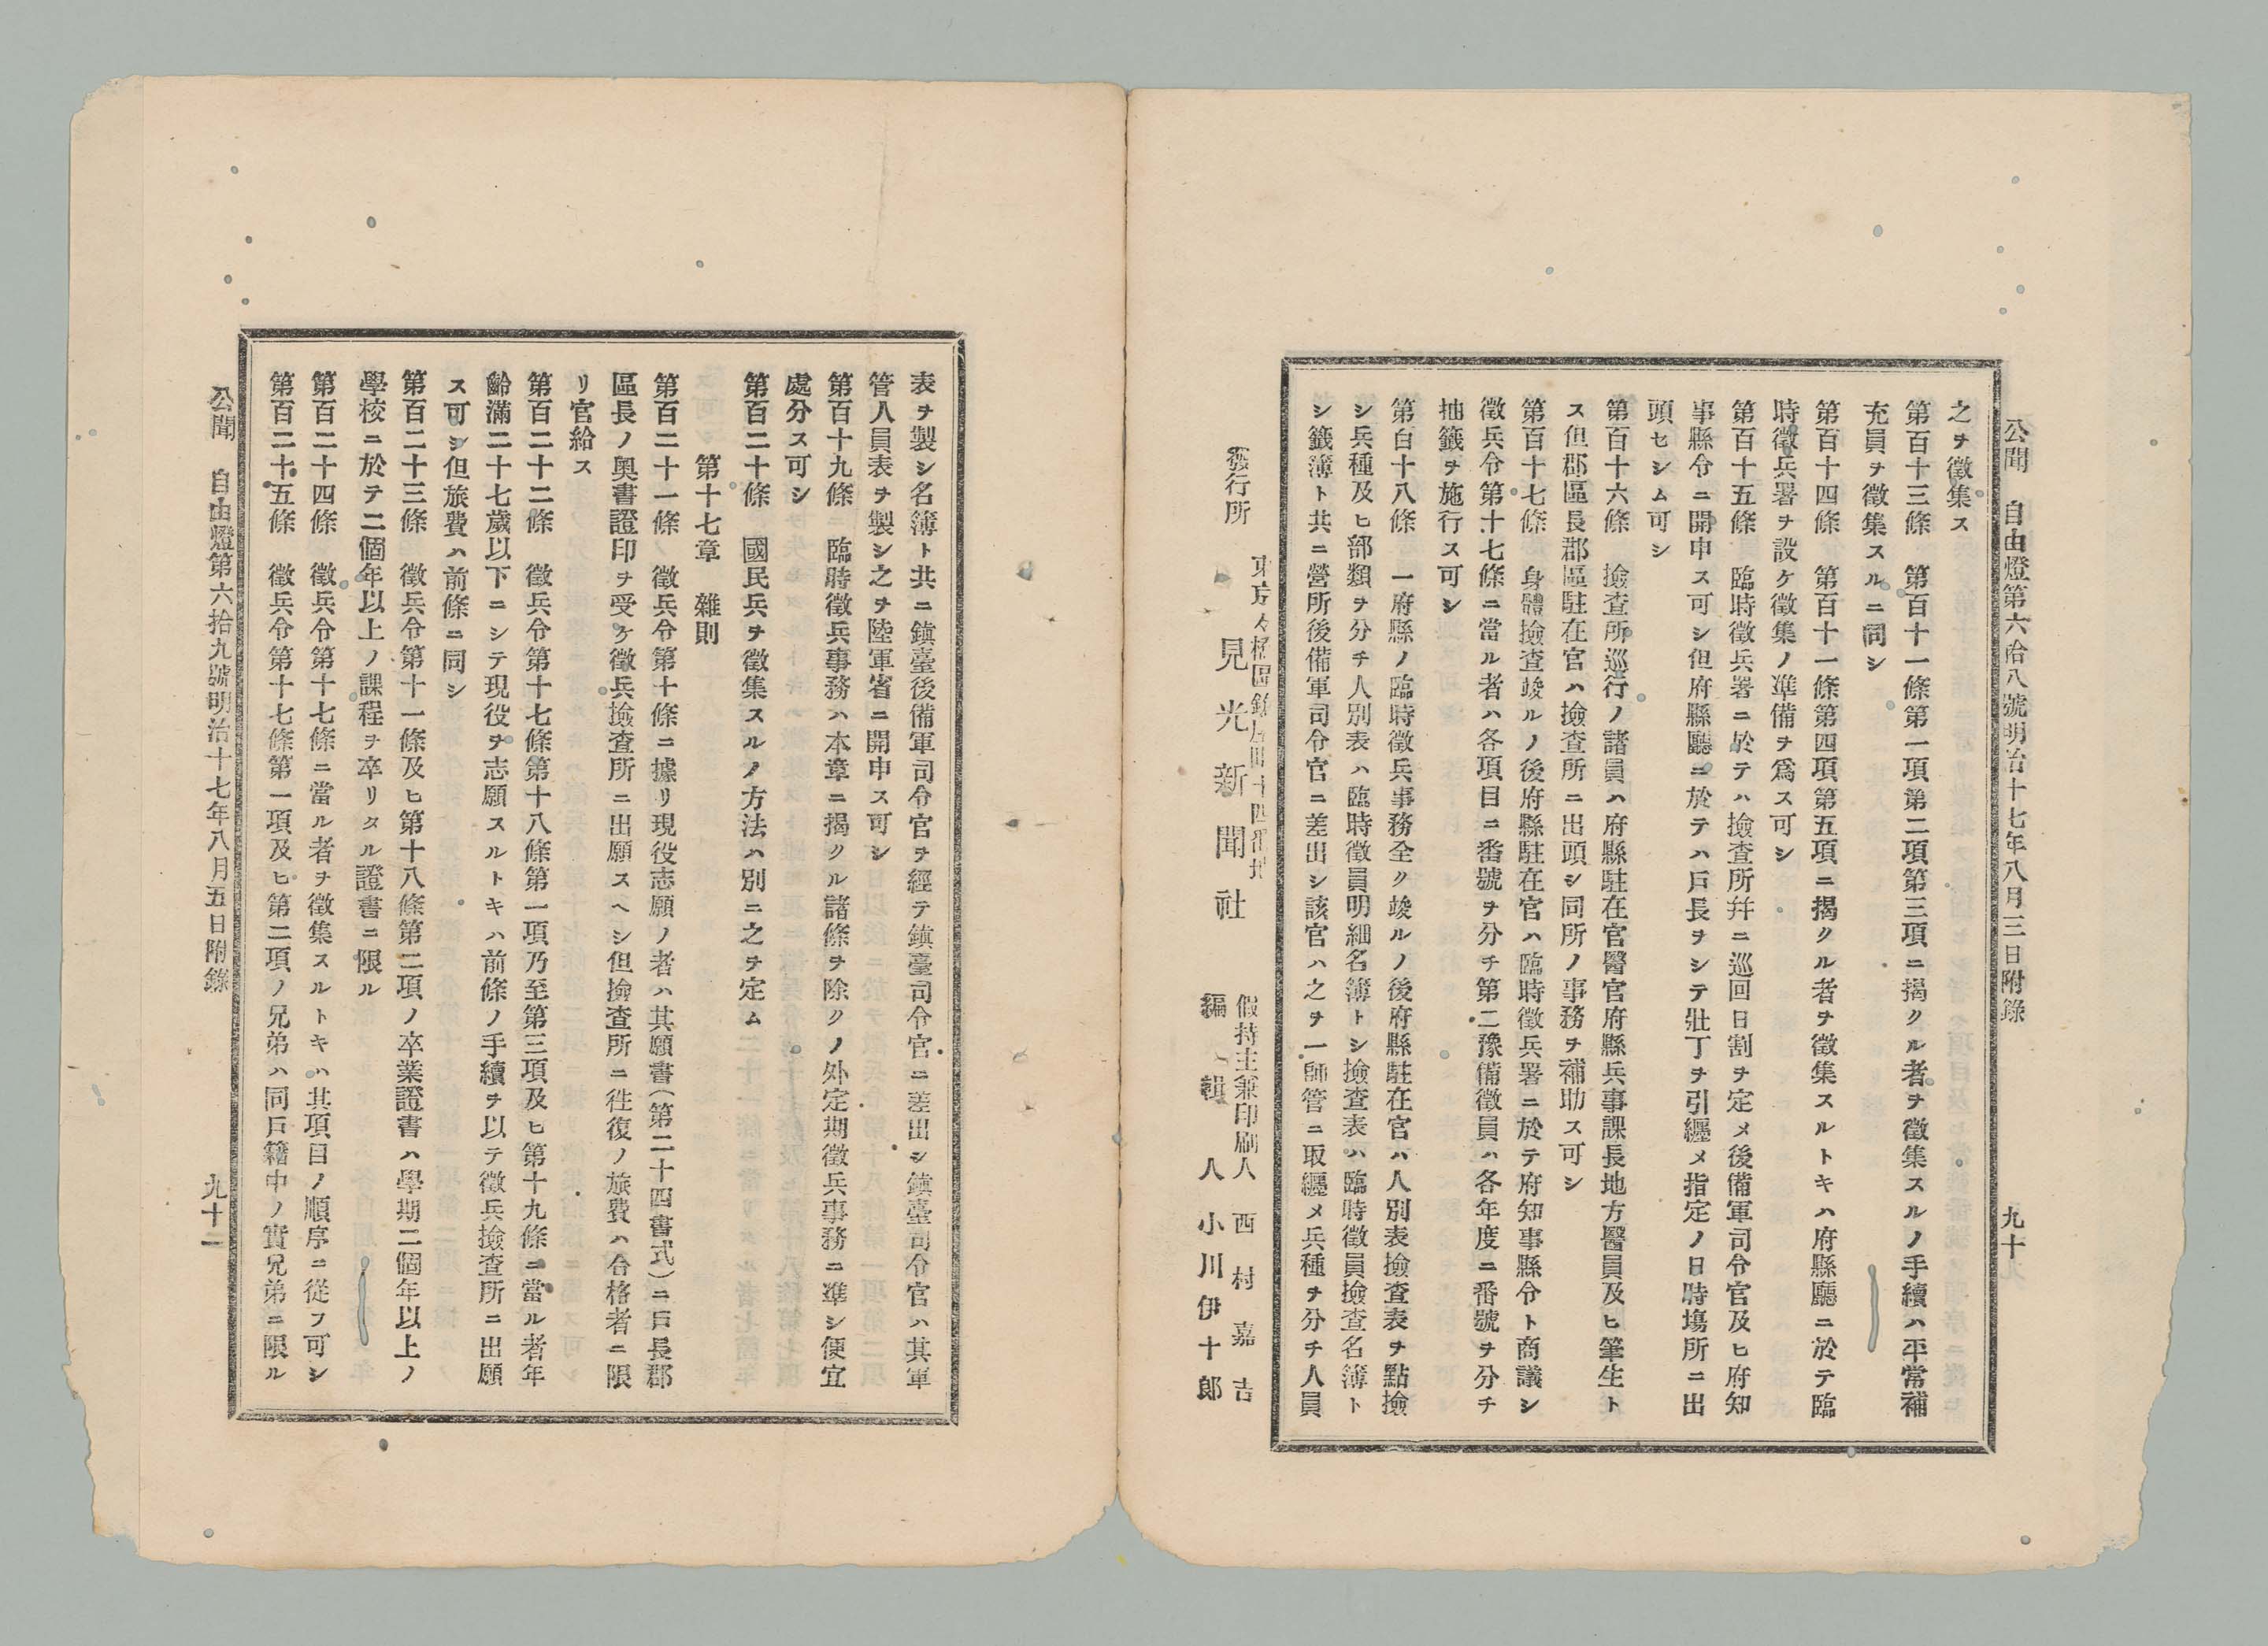 公聞　自由燈第六拾八號明治十七年八月三日附錄　九十九
之ヲ徵集ス
第百十三條　第百十一條第一項第二項第三項ニ揭クル者ヲ徵集スルノ手續ハ平常補
充員ヲ徵集スルニ同シ
第百十四條　第百十一條第四項第五項ニ揭クル者ヲ徵集スルトキハ府縣廳ニ於テ臨
時徵兵署ヲ設ケ徵集ノ準備ヲ爲ス可シ
第百十五條　臨時徵兵署ニ於テハ撿查所幷ニ巡回日割ヲ定メ後備軍司令官及ヒ府知
事縣令ニ開申ス可シ但府縣廳ニ於テハ戶長ヲシテ壯丁ヲ引纒メ指定ノ日時塲所ニ出
頭セシム可シ
第百十六條　撿查所巡行ノ諸員ハ府縣駐在官醫官府縣兵事課長地方醫員及ヒ筆生ト
ス但郡區長郡區駐在官ハ撿查所ニ出頭シ同所ノ事務ヲ補助ス可シ
第百十七條　身體撿查竣ルノ後府縣駐在官ハ臨時徵兵署ニ於テ府知事縣令ト商議シ
徵兵令第十七條ニ當ル者ハ各項目ニ番號ヲ分チ第二豫備徵員ハ各年度ニ番號ヲ分チ
抽籤ヲ施行ス可シ
第百十八條　一府縣ノ臨時徵兵事務全ク竣ルノ後府縣駐在官ハ人別表撿查表ヲ點撿
シ兵種及ヒ部類ヲ分チ人別表ハ臨時徵員明細名簿トシ撿查表ハ臨時徵員撿查名簿ト
シ籤簿ト共ニ營所後備軍司令官ニ差出シ該官ハ之ヲ一師管ニ取纒メ兵種ヲ分チ人員
發行所　東京京橋區
見光新聞社
假持主兼印刷人　西村嘉吉
編輯人　小川伊十郞
表ヲ製シ名簿ト共ニ鎭臺後備軍司令官ヲ經テ鎭臺司令官ニ差出シ鎭臺司令官ハ其軍
管人員表ヲ製シ之ヲ陸軍省ニ開申ス可シ
第百十九條　臨時徵兵事務ハ本章ニ揭クル諸條ヲ除クノ外定期徵兵事務ニ準シ便宜
處分ス可シ
第百二十條　國民兵ヲ徵集スルノ方法ハ別ニ之ヲ定ム
第十七章　雜則
第百二十一條　徵兵令第十條ニ據リ現役志願ノ者ハ其願書（第二十四書式）ニ戶長郡
區長ノ奧書證印ヲ受ケ徵兵撿查所ニ出願スヘシ但撿查所ニ徃復ノ旅費ハ合格者ニ限
リ官給ス
第百二十二條　徵兵令第十七條第十八條第一項乃至第三項及ヒ第十九條ニ當ル者年
齡滿二十七歲以下ニシテ現役ヲ志願スルトキハ前條ノ手續ヲ以テ徵兵撿查所ニ出願
ス可シ但旅費ハ前條ニ同シ
第百二十三條　徵兵令第十一條及ヒ第十八條第二項ノ卒業證書ハ學期二個年以上ノ
學校ニ於テ二個年以上ノ課程ヲ卒リタル證書ニ限ル
第百二十四條　徵兵令第十七條ニ當ル者ヲ徵集スルトキハ其項目ノ順序ニ從フ可シ
第百二十五條　徵兵令第十七條第一項及ヒ第二項ノ兄弟ハ同戶籍中ノ實兄弟ニ限ル
公聞　自由燈第六拾九號明治十七年八月五日附錄　九十二